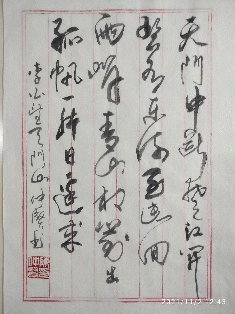 天門中断楚江開
碧水東流至此回
兩岸青山相對出
孤帆一片日邊來
李白望天門山
2021/11/2 12:43